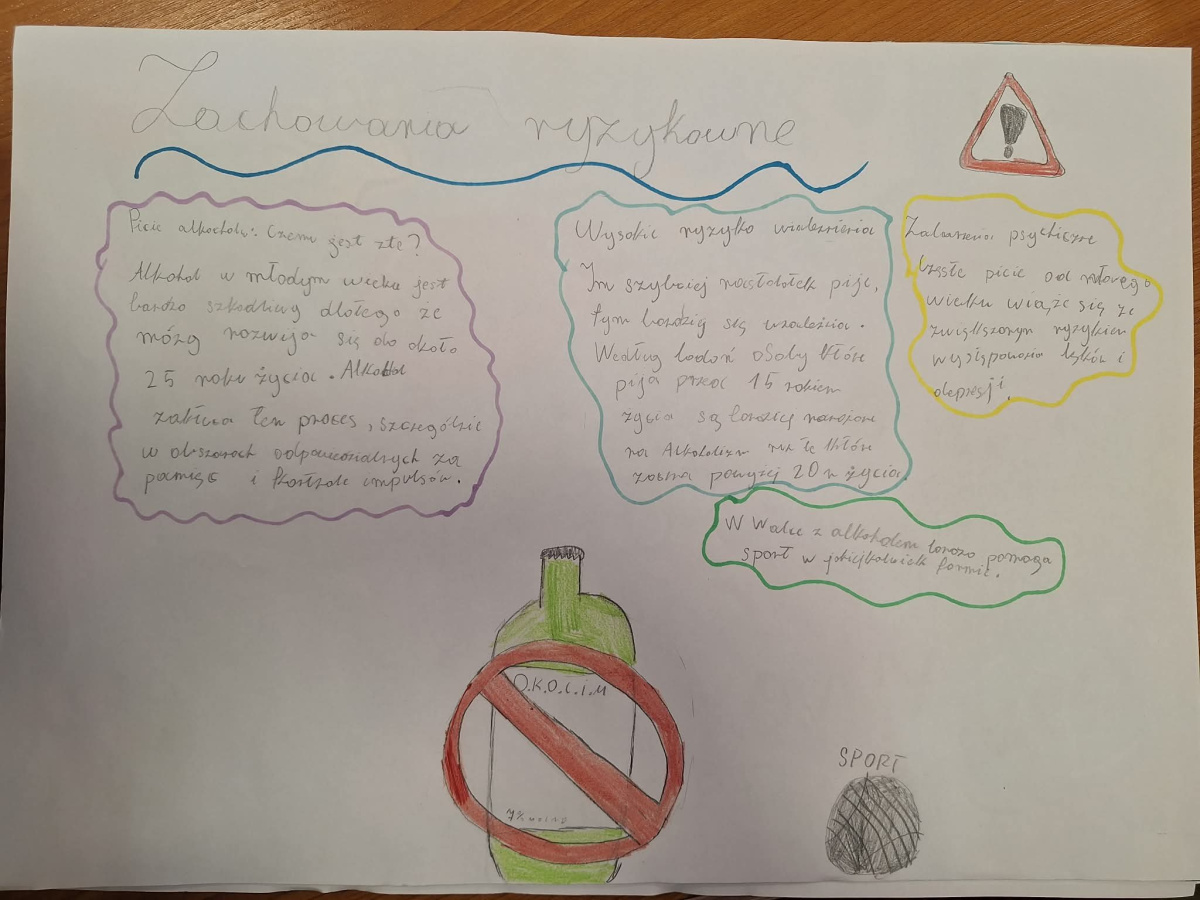 Zachowania ryzykowne
Picie alkocholu: Czemu jest złe?
Alkohol w młodym wieku jest
bardzo szkodliwy dlatego że
mózg rozwija się do około
25 roku życia. Alkohol
zaburza ten proces, szczególnie
w obszarach odpowiedzialnych za
pamięć i kontrole impulsów.
Wysokie ryzyko uzależnienia
Im szybciej nastolatek pije,
tym bardziej się uzależnia.
Według badań osoby które
piją przed 15 rokiem
życia są bardziej narażone
na Alkoholizm niż te które
zaczną powyżej 20 r życia
Zaburzenia psychiczne
Częste picie od młodego
wieku wiąże się ze
zwiększonym ryzykiem
występowania lęków i
depresji.
W Walce z alkoholem bardzo pomaga
sport w jakiejkolwiek formie.
O.K.O.C.I.M
7%
SPORT